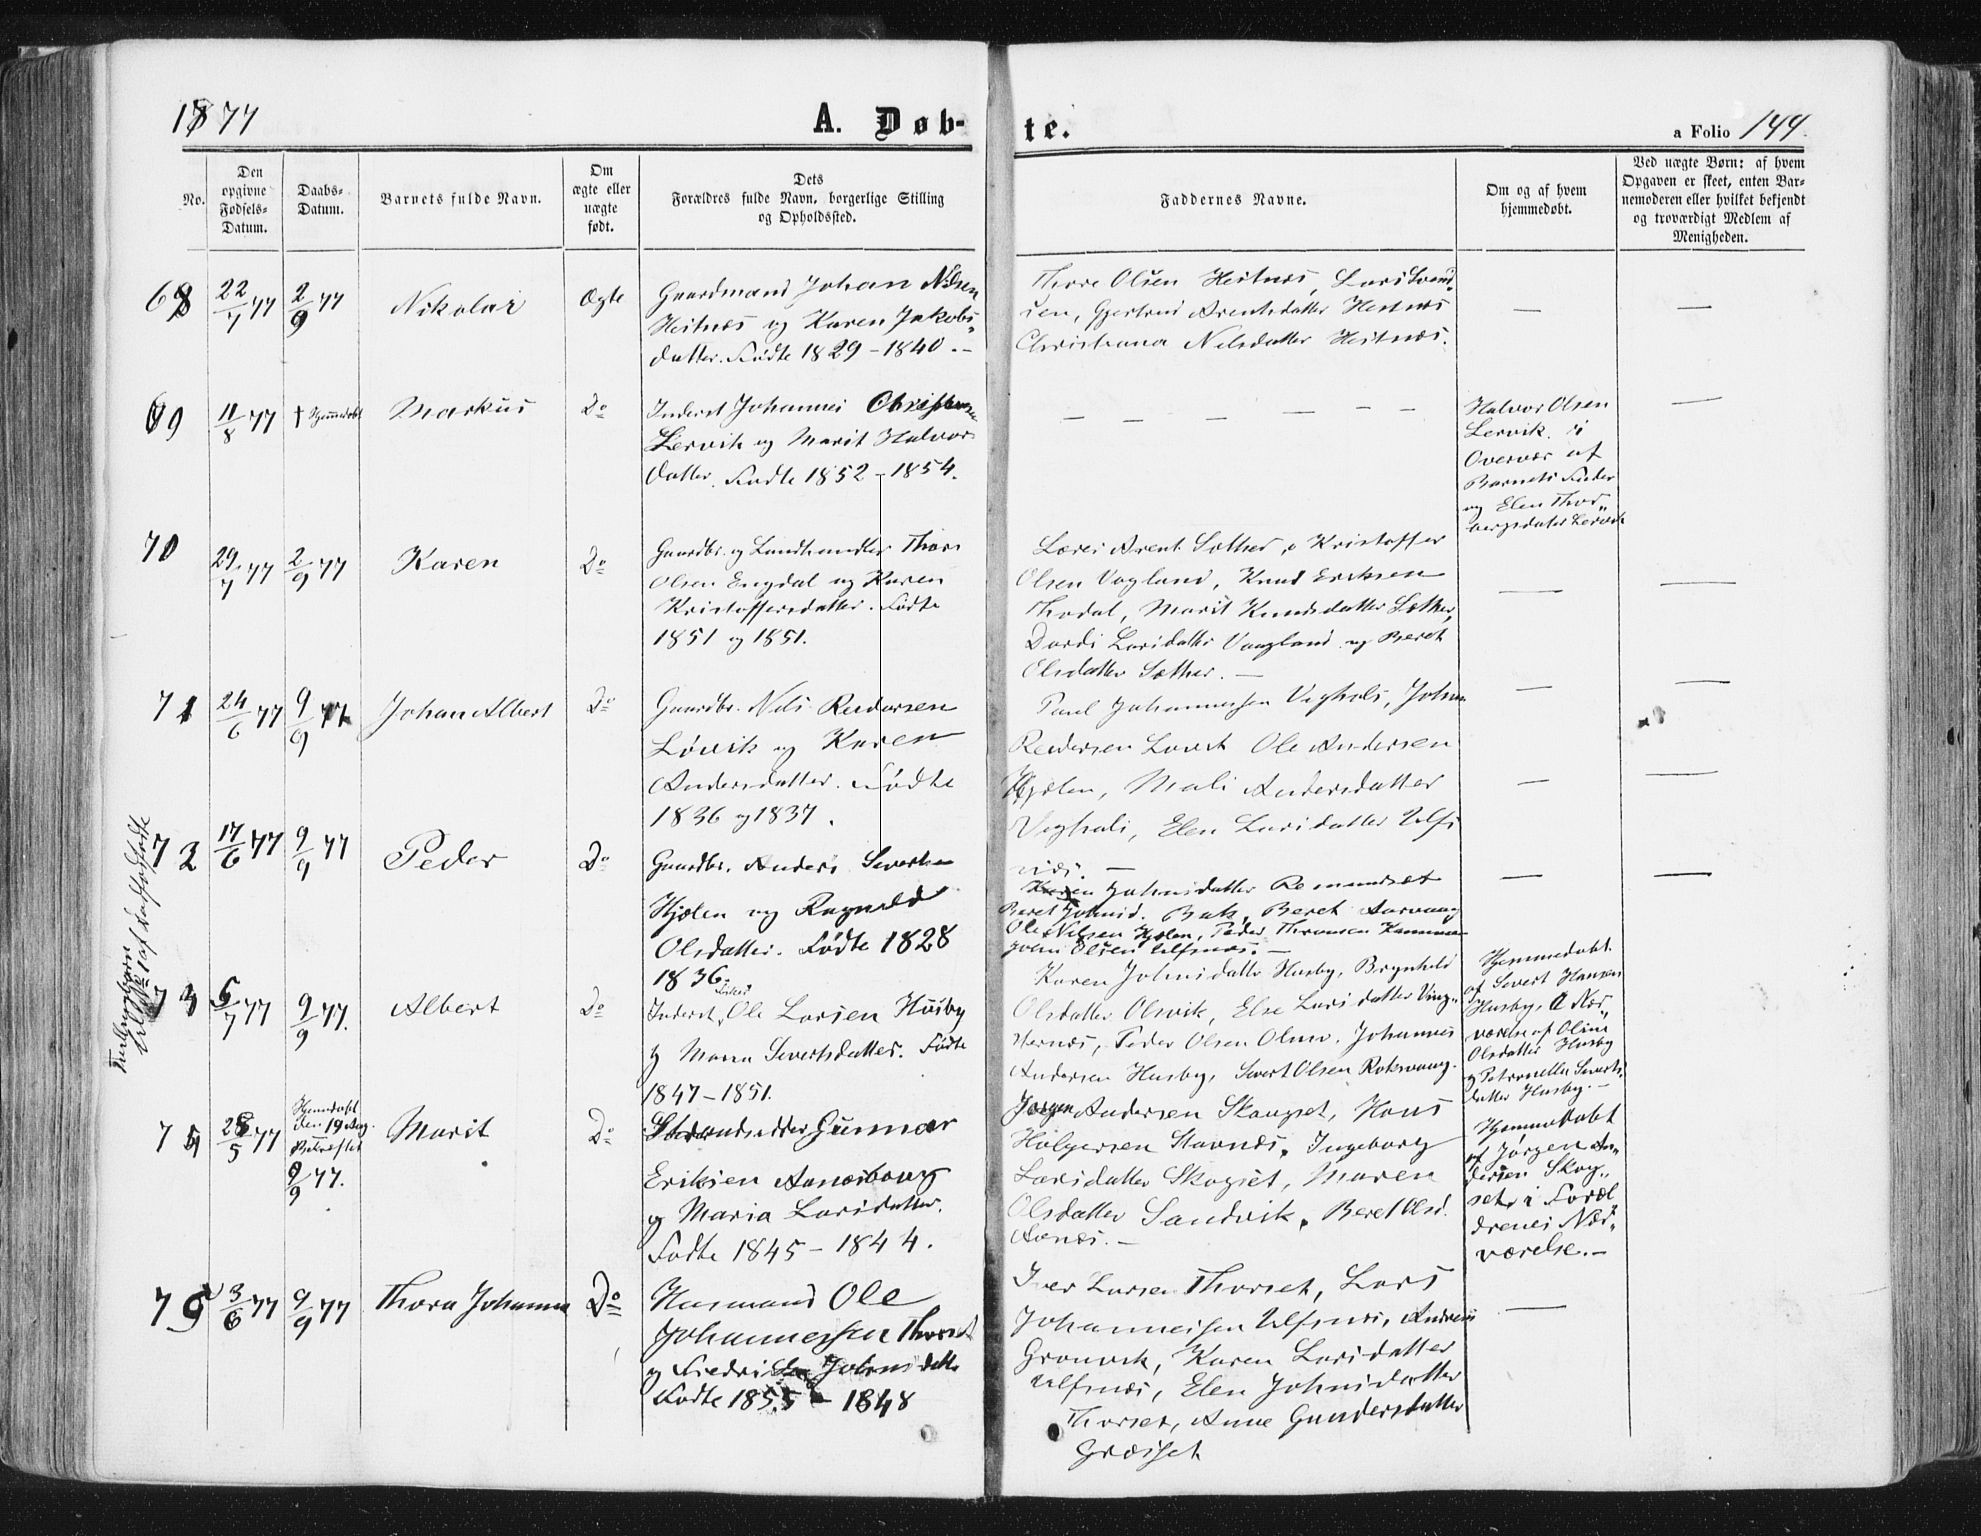 1877
A. Døb-
te.
a Folio 144.
No.
Den
opgivne
Fødsels-
Datum.
Daabs-
Datum.
Barnets fulde Navn.
Om
ægte eller
uægte
født.
Dets
Forældres fulde Navn, borgerlige Stilling
og Opholdssted.
Faddernes Navne.
Om og af hvem
hjemmedøbt.
Ved uægte Børn: af hvem
Opgaven er skeet, enten Bar-
nemoderen eller hvilket bekjendt
og troværdigt Medlem af
Menigheden.
68
22/7 77
2/9 77
Nikolai
Ægte
Gaardmand Johan Nilsen
Heitnæs og Karen Jakobs„
datter. Fødte 1829 - 1840. -
Thore Olsen Heitnæs, Lars Svend„
sen, Gjertrud Arentsdatter Heitnæs
Christiana Nilsdatter Heitnæs.
69
11/8 77
† Hjemmedøbt
Markus
Do
Inderst Johannes Christensen
Lervik og Marit Halvors
datter. Fødte 1852 - 1854.
Halvor Olsen
Lervik i
Overvær af
Barnets Fader
og Elen Thor„
bergsdatter Lervik
70
29/7 77
2/9 77
Karen
Do
Gaardbr. og Landhandler Thore
Olsen Engdal og Karen
Kristoffersdatter. Fødte
1851 og 1851.
Lærer Arent Sæther, Kristoffer
Olsen Vagland, Knud Eriksen
Thodal, Marit Knudsdatter Sæther,
Dordi Larsdatter Vaagland og Beret
Olsdatter Sæther. -
71
24/6 77
9/9 77
Johan Albert
Do
Gaardbr. Nils Reidarsen
Løvik og Karen
Andersdatter. Fødte
1836 og 1837.
Paul Johannessen Veghals, Johan
Reidersen Løvik Ole Andersen
Hjælen, Mali Andersdatter
Veghals, Elen Larsdatter Ulfs
næs. -
72
17/6 77
9/9 77
Peder
Do
Gaardbr. Anders Sivertsen
Hjælen og Ragnild
Olsdatter. Fødte 1828
1836.
Karen Johnsdatter Romundset
Beret Johnsd. Bak, Beret Aarvaag
Ole Nilsen Hjælen, Peder Thronsen
John Olsen Ulfsnæs. -
73
5/7 77
9/9 77.
Albert
Do
Inderst Ole Larsen Husby
og Maria Sivertsdatter. Fødte
1847 - 1851.
Karen Johnsdatter Husby, Brynhild
Olsdatter Olsvik, Else Larsdatter Ving„
sternæs, Peder Olsen, Johannes
Andersen Husby, Sivert Olsen Rokvaag.
Hjemmedøbt
af Sivert Hansen
Husby, i Nær„
værelse af Oline
Olsdatter Husby
og Petronelle Siverts„
datter Husby. -
74
28/5 77
Hjemdøbt
den 19 Aug.
Bekræftet
9/9 77.
Marit
Do
Gunnar
Eriksen Aanesbaug
og Maria Larsdatter.
Fødte 1845 - 1844.
Jørgen Andersen Skougset, Hans
Holgersen Stavnæs, Ingeborg
Larsdatter Skogset, Maren
Olsdatter Sandvik, Beret Olsd.
Aanes. -
Hjemmedøbt
af Jørgen An„
dersen Skog„
set, i Foræl„
drenes Nær„
værelse. -
75
3/6 77
9/9 77
Thora Johanna
Do
Husmand Ole
Johannessen Thorset
og Fredrikke Johnsdatter
Fødte 1855 - 1848
Iver Larsen Thorset, Lars
Johannessen Ulfsnæs, Andreas
Gronvik, Karen Larsdatter
Ulfsnæs, Elen Johnsdatter
Thorset, Anne Gundersdatter
Græsset